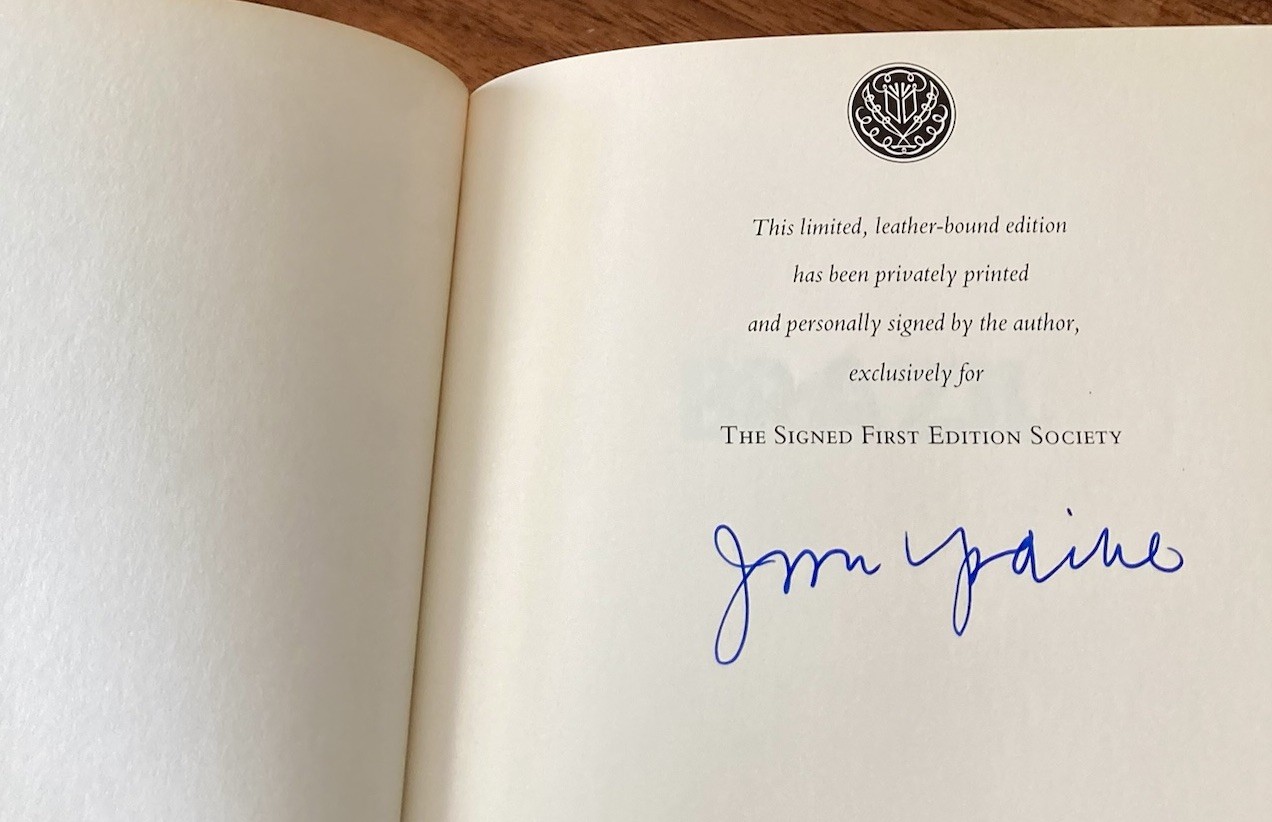 This limited, leather-bound edition
has been privately printed
and personally signed by the author,
exclusively for
The Signed First Edition Society
John Updike